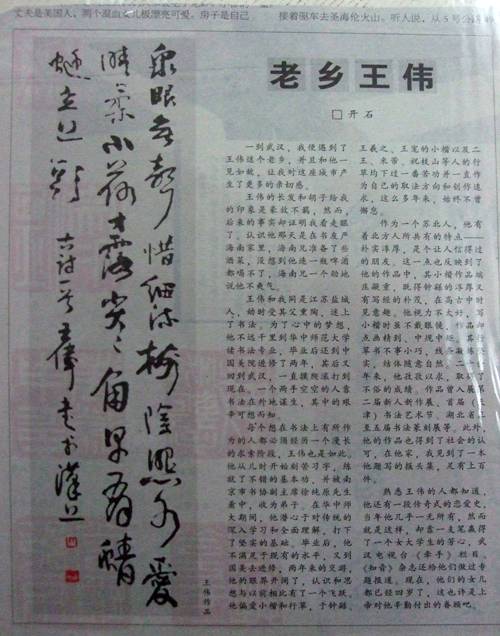 丈夫是美国人，两个混血女儿极漂亮可爱。房子是自己
接着驱车去圣海伦火山。听人说，从5号公路
泉眼无声惜细流树阴照水爱
晴柔小荷才露尖尖角早有蜻
蜓立上头
古诗一首 王伟书于汉上
王伟作品
老乡王伟
□开石
一到武汉，我便遇到了
王伟这个老乡，并且和他一
见如故，让我对这座城市产
生了更多的亲切感。
王伟的长发和胡子给我
的印象是豪放不羁，然而，
后来的事实却证明我看走眼
了。认识他那天是在书友严
海南家里，海南兄准备了些
酒菜，没想到他连一瓶啤酒
都喝不了，海南兄一个劲地
说他不爽气。
王伟和我同是江苏盐城
人，幼时受其父熏陶，迷上
了书法。为了心中的梦想，
他不远千里到华中师范大学
读书法专业，毕业后还到中
国美院进修了两年，其后又
回到武汉，一直摸爬滚打到
现在。一个两手空空的人靠
书法在外地谋生，其中的艰
辛可想而知。
每个想在书法上有所作
为的人都必须经历一个漫长
的求索阶段，王伟也是如此。
他从几时开始刻苦习字，练
就了不错的基本功，并被南
京市书协副主席徐纯原先生
看中，收为弟子。在华中师
大期间，他潜心于对传统的
深入学习和全面理解，打下
了坚实的基础。毕业后，他
不满足于现有的水平，又到
国美去进修，两年来的交游，
他的眼界开阔了，认识和思
想与以前相比有了一个飞跃。
他偏爱小楷和行草，于钟繇、
王羲之、王宠的小楷以及二
王、米芾、祝枝山等人的行
草均下过一番苦功并一直作
为自己的取法方向和创作追
求，这么多年来，始终不曾
懈怠。
作为一个苏北人，他有
着北方人所共有的特点——
朴实淳厚，是个让人信得过
的朋友。这一点也反映到了
他的作品中，其小楷作品端
庄凝重，既得钟繇的淳厚又
有写经的朴茂，在高古中时
见意趣。他视力不大好，写
小楷时虽不戴眼镜，作品却
点画精到，中规中矩。其行
草书不事小巧，线条凝练
实，结体随意自然。二
年来，他孜孜以求，取
不俗的成绩。作品曾入展第
二届新人新作展、首届（
津）书法艺术节、湖北省
至五届书法篆刻展等。此外，
他的作品也得到了社会的认
可，在他家，我见到了一本
他题写的报头集，足有上百
件。
熟悉王伟的人都知道，
他还有一段传奇式的恋爱史。
当年他几乎一无所有，然而
就是这样，却靠一支笔赢得
了一个女大学生的芳心，武
汉电视台《牵手》栏目、
《知音》杂志还给他们做过专
题报道。现在，他们的女儿
都已经四岁了，这也许是上
帝对他辛勤付出的眷顾吧。